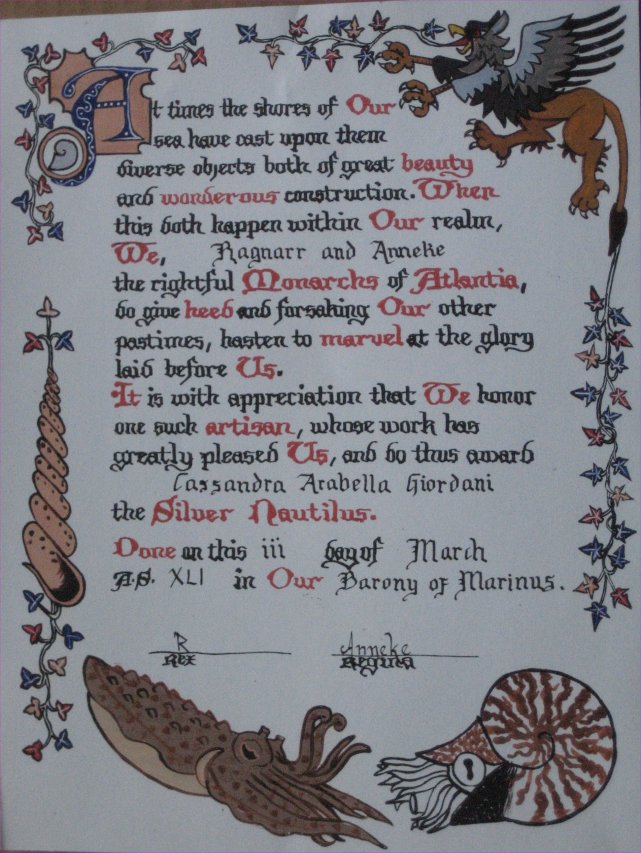 At times the shores of Our
sea have cast upon them
diverse objects both of great beauty
and wonderous construction. When
this doth happen within Our realm,
We, Ragnarr and Anneke
the rightful Monarchs of Atlantia,
do give heed and forsaking Our other
pastimes, hasten to marvel at the glory
laid before Us.
It is with appreciation that We honor
one such artisan, whose work has
greatly pleased Us, and do thus award
Cassandra Arabella Giordani
the Silver Nautilus.
Done on this iii day of March
A.S. XLI in Our Barony of Marinus.
R Anneke
Rex Regina